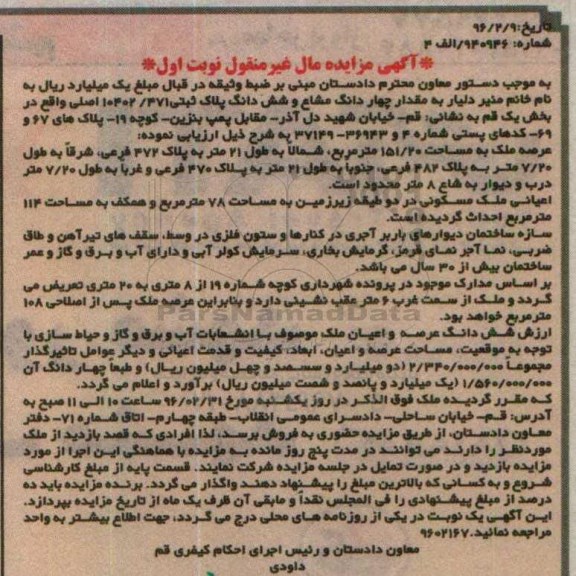 تاریخ:۹۶/۲/۹
شماره: ۹۴۰۹۴۶/الف ۴
*آگهی مزایده مال غیرمنقول نوبت اول*
به موجب دستور معاون محترم دادستان مبنی بر ضبط وثیقه در قبال مبلغ یک میلیارد ریال به
نام خانم منیر دلیار به مقدار چهار دانگ مشاع و شش دانگ پلاک ثبتی۱۰۴۰۲/۴۷۱ اصلی واقع در
بخش یک قم به نشانی: قم- خیابان شهید دل آذر- مقابل پمپ بنزین- کوچه ۱۹- پلاک های ۶۷ و
۶۹- کدهای پستی شماره ۴ و ۳۶۹۴۳-۳۷۱۴۹ به شرح ذیل ارزیابی نموده:
عرصه ملک به مساحت ۱۵۱/۲۰ مترمربع، شمالا به طول ۲۱ متر به پلاک ۴۷۲ فرعی، شرقاً به طول
۷/۲۰ متر به پلاک ۴۸۲ فرعی، جنوباً به طول ۲۱ متر به پلاک ۴۷۰ فرعی و غرباً به طول ۷/۲۰ متر
درب و دیوار به شاع ۸ متر محدود است.
اعیانی ملک مسکونی در دو طبقه زیرزمین به مساحت ۷۸ مترمربع و همکف به مساحت ۱۱۴
مترمربع احداث گردیده است.
سازه ساختمان دیوارهای باربر آجری در کنارها و ستون فلزی در وسط، سقف های تیرآهن و طاق
ضربی، نما آجر نمای قرمز، گرمایش بخاری، سرمایش کولر آبی و دارای آب و برق و گاز و عمر
ساختمان بیش از ۳۰ سال می باشد.
بر اساس مدارک موجود در پرونده شهرداری کوچه شماره ۱۹ از ۸ متری به ۲۰ متری تعریض می
گردد و ملک از سمت غرب ۶ متر عقب نشینی دارد و بنابراین عرصه ملک پس از اصلاحی ۱۰۸
مترمربع خواهد بود.
ParsNamadData
ارزش شش دانگ عرصه و اعیان ملک موصوف با انشعابات آب و برق و گاز و حیاط سازی با
توجه به موقعیت، مساحت عرصه و اعیان، ابعاد، کیفیت و قدمت اعیانی و دیگر عوامل تاثیرگذار
مجموعاً ۲/۳۴۰/۰۰۰/۰۰۰ (دو میلیارد و سیصد و چهل میلیون ریال) و طبعا چهار دانگ آن
۱/۵۶۰/۰۰۰/۰۰۰ (یک میلیارد و پانصد و شصت میلیون ریال) برآورد و اعلام می گردد.
که مقرر گردیده ملک فوق الذکر در روز یکشنبه مورخ ۹۶/۰۲/۳۱ ساعت ۱۰ الی ۱۱ صبح به
آدرس: قم- خیابان ساحلی- دادسرای عمومی انقلاب- طبقه چهارم- اتاق شماره ۷۱- دفتر
معاون دادستان، از طریق مزایده حضوری به فروش برسد، لذا افرادی که قصد بازدید از ملک
موردنظر را دارند می توانند در مدت پنج روز مانده به مزایده با هماهنگی این اجرا از مورد
مزایده بازدید و در صورت تمایل در جلسه مزایده شرکت نمایند. قسمت پایه از مبلغ کارشناسی
شروع و به کسانی که بالاترین مبلغ را پیشنهاد دهند واگذار می گردد. برنده مزایده باید ده
درصد از مبلغ پیشنهادی را فی المجلس نقدا و مابقی آن ظرف یک ماه از تاریخ مزایده بپردازد.
این آگهی یک نوبت در یکی از روزنامه های محلی درج می گردد، جهت اطلاع بیشتر به واحد
مراجعه نمائید.۹۶۰۲۱۶۷
معاون دادستان و رئیس اجرای احکام کیفری قم
داودی